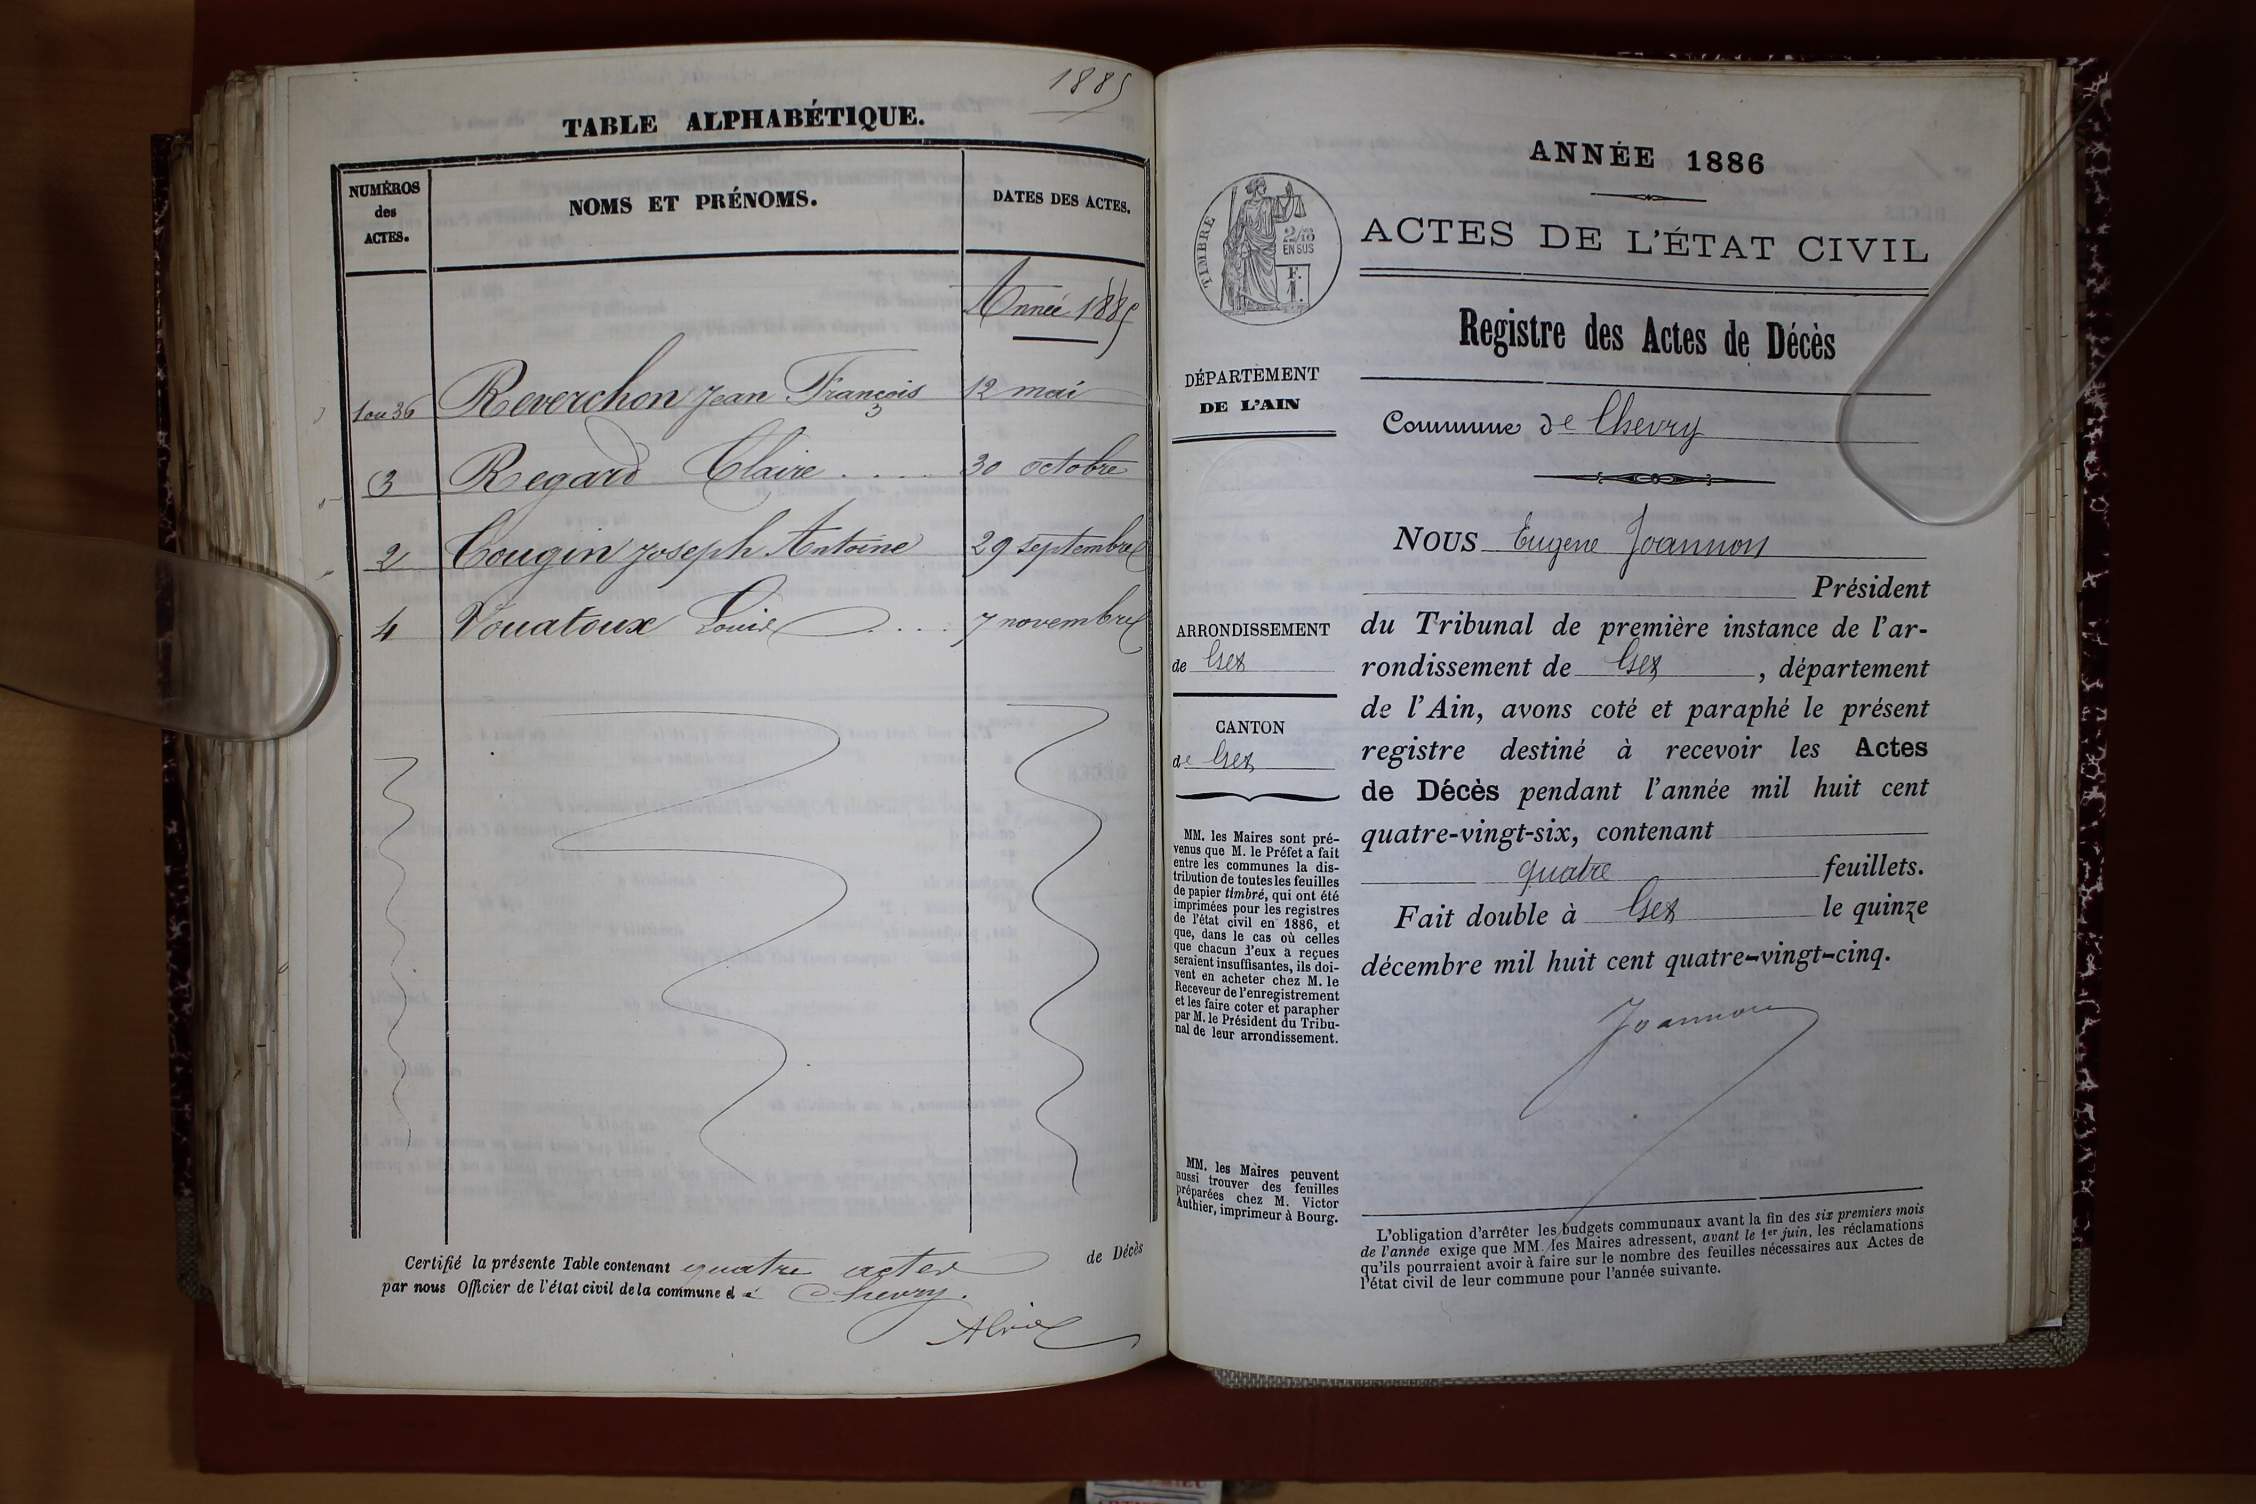 1885
TABLE ALPHABÉTIQUE.
NUMÉROS
des
ACTES.
NOMS ET PRÉNOMS.
DATES DES ACTES.
Année 1885
1 ou 36 Reverchon Jean François 12 mai
3 Regard Claire .... 30 octobre
2 Cougin Joseph Antoine 29 septembre
4 Vouatoux Louis .... 7 novembre
Certifié la présente Table contenant quatre actes de Décès
par nous Officier de l'état civil de la commune de Chevry.
ANNÉE 1886
ACTES DE L'ÉTAT CIVIL
TIMBRE
2/10
EN SUS
F.
1.
Registre des Actes de Décès
DÉPARTEMENT
DE L'AIN
Commune de Chevry
NOUS Eugene Joannon
Président
du Tribunal de première instance de l'ar-
rondissement de Gex, département
de l'Ain, avons coté et paraphé le présent
registre destiné à recevoir les Actes
de Décès pendant l'année mil huit cent
quatre-vingt-six, contenant
quatre feuillets.
Fait double à Gex le quinze
décembre mil huit cent quatre-vingt-cinq.
Joannon
ARRONDISSEMENT
de Gex
CANTON
de Gex
MM. les Maires sont pré-
venus que M. le Préfet a fait
entre les communes la dis-
tribution de toutes les feuilles
de papier timbré, qui ont été
imprimées pour les registres
de l'état civil en 1886, et
que, dans le cas où celles
que chacun d'eux a reçues
seraient insuffisantes, ils doi-
vent en acheter chez M. le
Receveur de l'enregistrement
et les faire coter et parapher
par M. le Président du Tribu-
nal de leur arrondissement.
MM. les Maires peuvent
aussi trouver des feuilles
préparées chez M. Victor
Authier, imprimeur à Bourg.
L'obligation d'arrêter les budgets communaux avant la fin des six premiers mois
de l'année exige que MM. les Maires adressent, avant le 1er juin, les réclamations
qu'ils pourraient avoir à faire sur le nombre des feuilles nécessaires aux Actes de
l'état civil de leur commune pour l'année suivante.